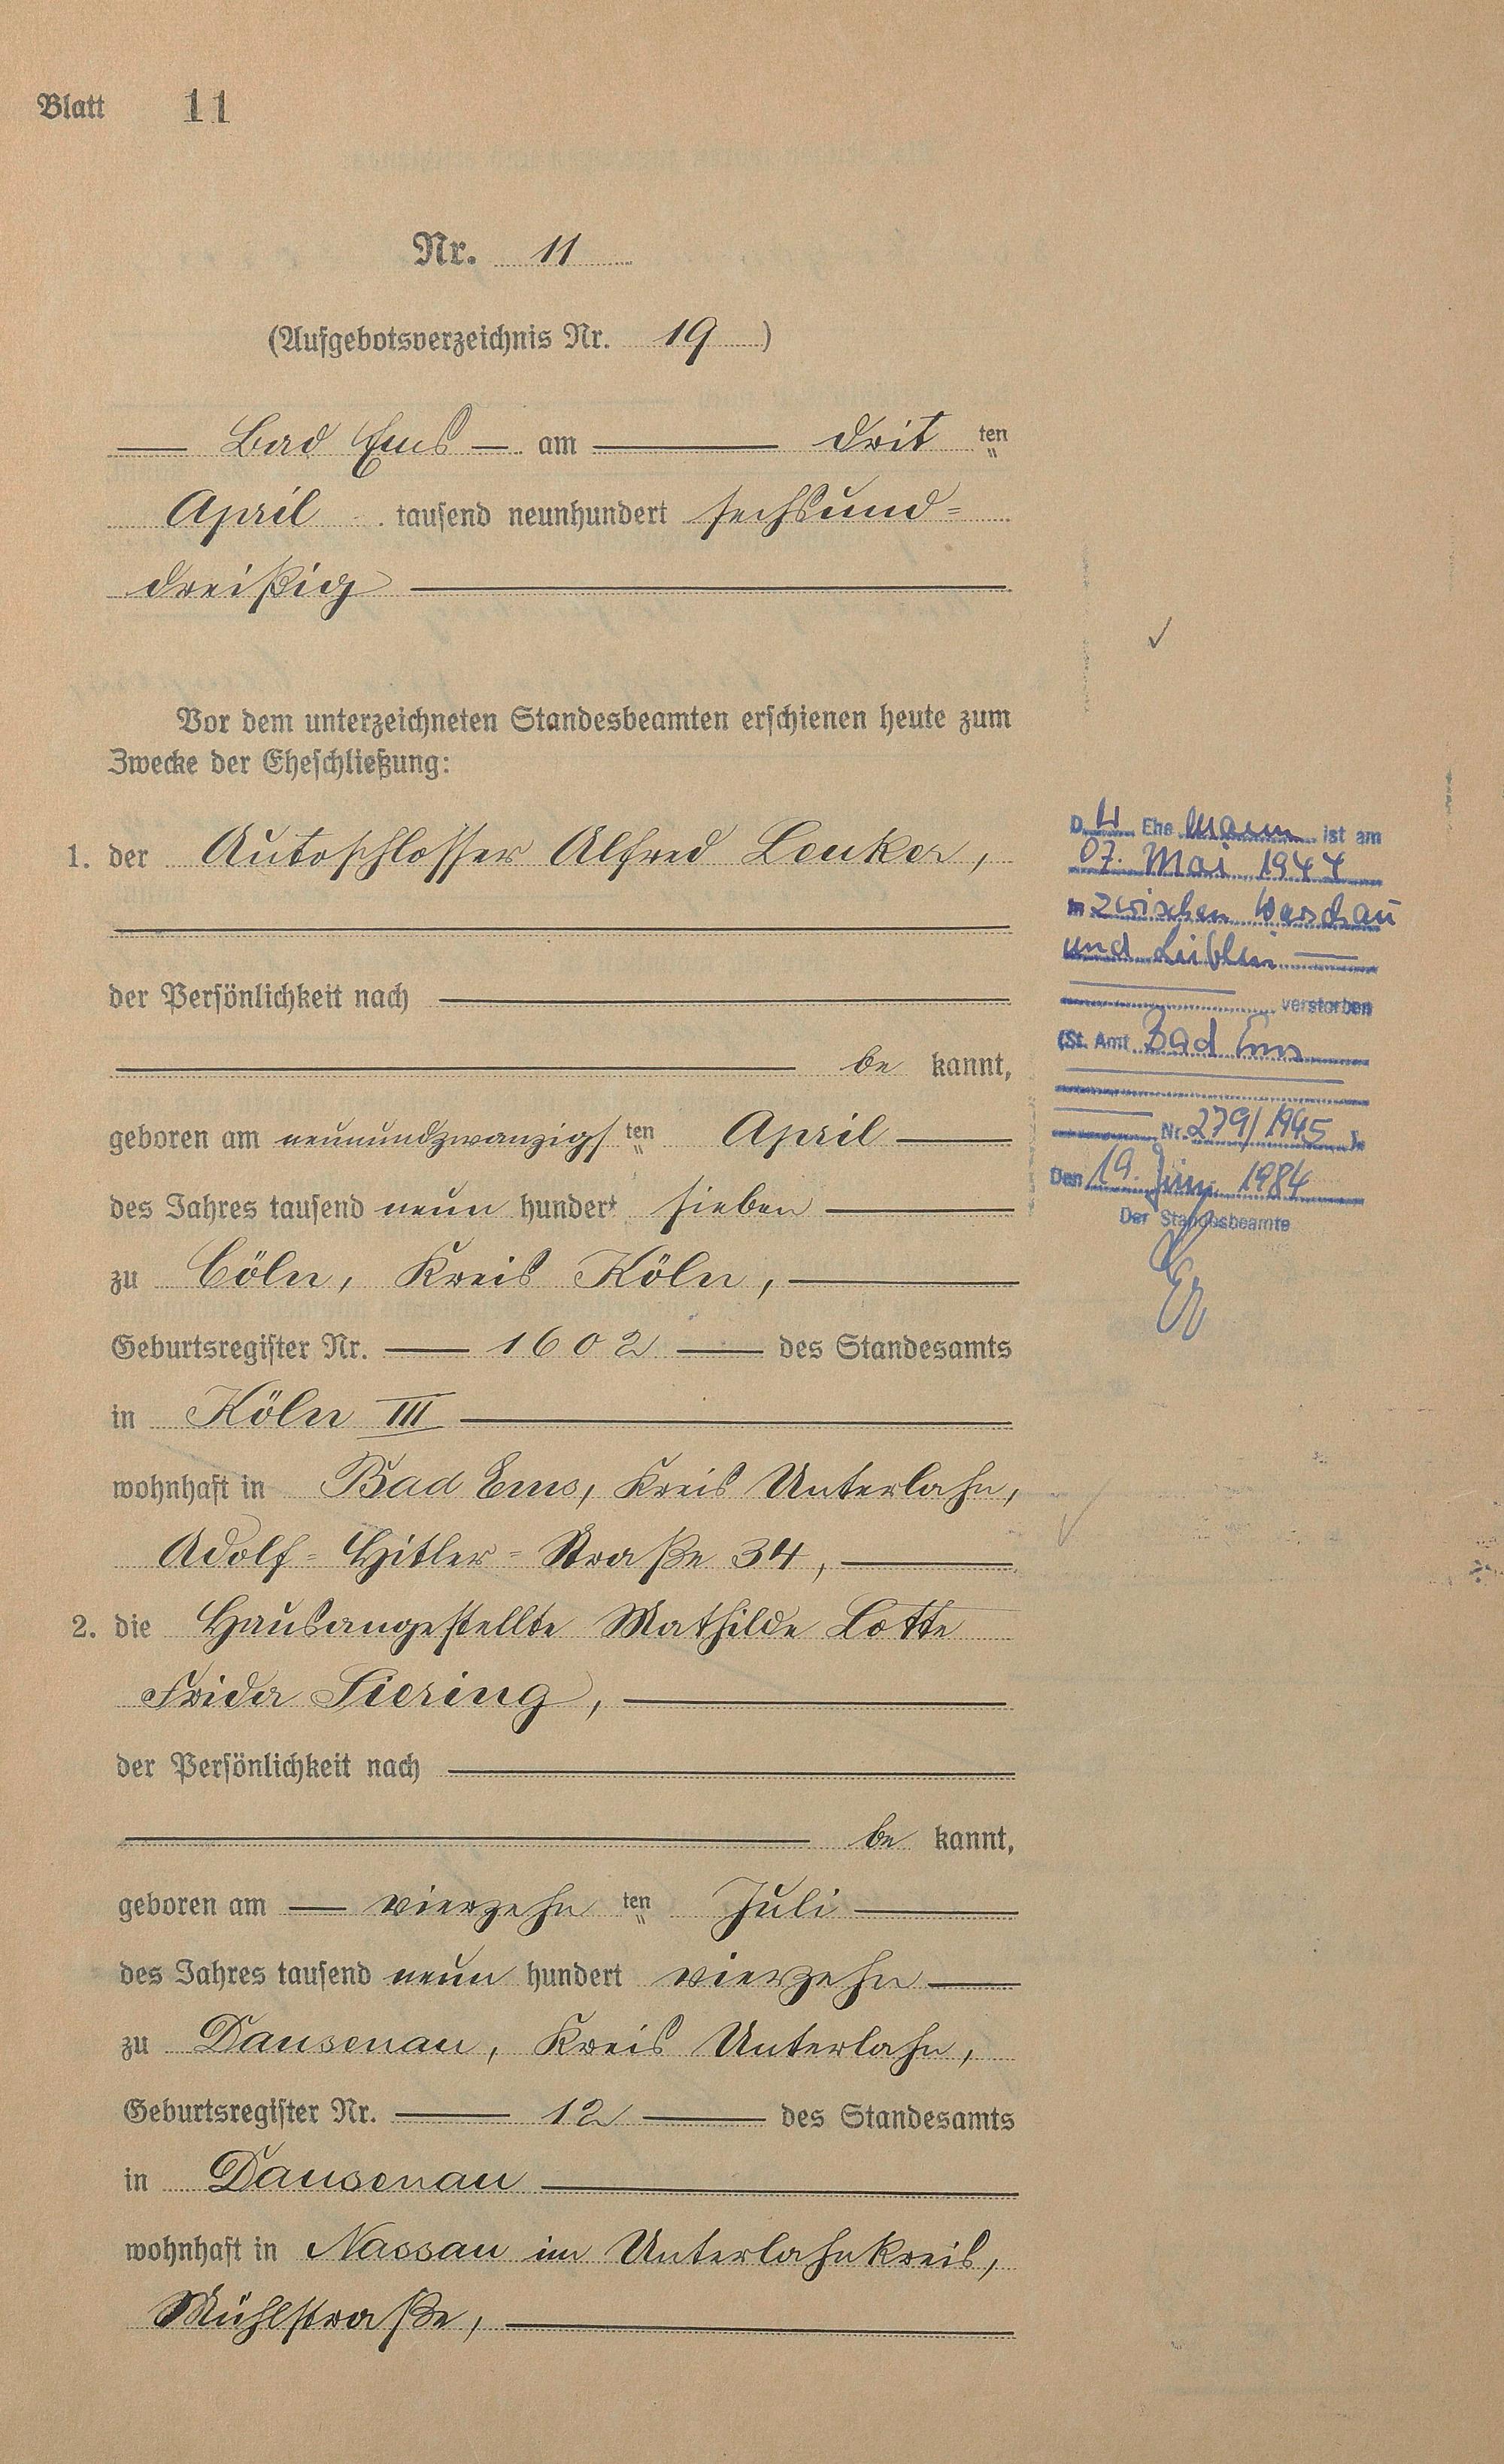 Blatt 11
Nr. 11
(Aufgebotsverzeichnis Nr. 19)
Bad Ems am drit ten
April tausend neunhundert sechsund=
dreißig
Vor dem unterzeichneten Standesbeamten erschienen heute zum
Zwecke der Eheschließung:
1. der Autoschlosser Alfred Lenker,
der Persönlichkeit nach
be kannt,
geboren am neunundzwanzigs ten April
des Jahres tausend neun hundert sieben
zu Cöln, Kreis Köln,
Geburtsregister Nr. 1602 des Standesamts
in Köln III
wohnhaft in Bad Ems, Kreis Unterlahn,
Adolf=Hitler=Straße 34,
2. die Hausangestellte Mathilde Lotte
Frida Siering,
der Persönlichkeit nach
be kannt,
geboren am vierzehn ten Juli
des Jahres tausend neun hundert vierzehn
zu Dausenau, Kreis Unterlahn,
Geburtsregister Nr. 12 des Standesamts
in Dausenau
wohnhaft in Nassau im Unterlahnkreis,
Mühlstraße,
D er Ehe mann ist am
07. Mai 1944
in zwischen Warschau
und Lublin
verstorben
(St. Amt Bad Ems
Nr. 279/1945 )
Den 19. Juni 1984
Der Standesbeamte